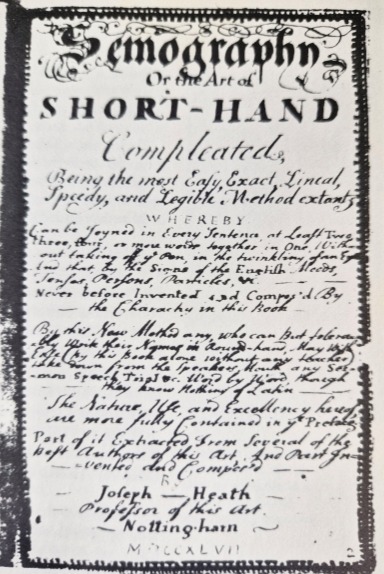 Semography
Or the Art of
SHORT-HAND
Compleated,
Being the most Easy, Exact, Lineal,
Speedy, and Legible Method extant,
WHEREBY
Can be Joyned in Every Sentence, at Least Two
three, four, or more words together in One, With-
out taking off ye Pen, in the twinkling of an Eye
And that, by the Signs of the English Moods,
Tenses, Persons, Particles, &c.
Never before Invented and Compos'd By
the in this Book
By this New Method any, who can But tolera-
bly Write their Names in Round-hand May With
Ease (by this Book alone without any teacher)
take down from the Speakers Mouth any Ser-
mon Speech Trial &c. Word by Word, though
they know Nothing of Latin
The Nature, Use, and Excellency hereof
are more fully Contained in ye Preface
Part of it Extracted from Several of the
Best Authors of this Art. And Part In-
vented and Compos'd
By
Joseph Heath
Professor of this Art.
Nottingham
MDCCXLVII
2